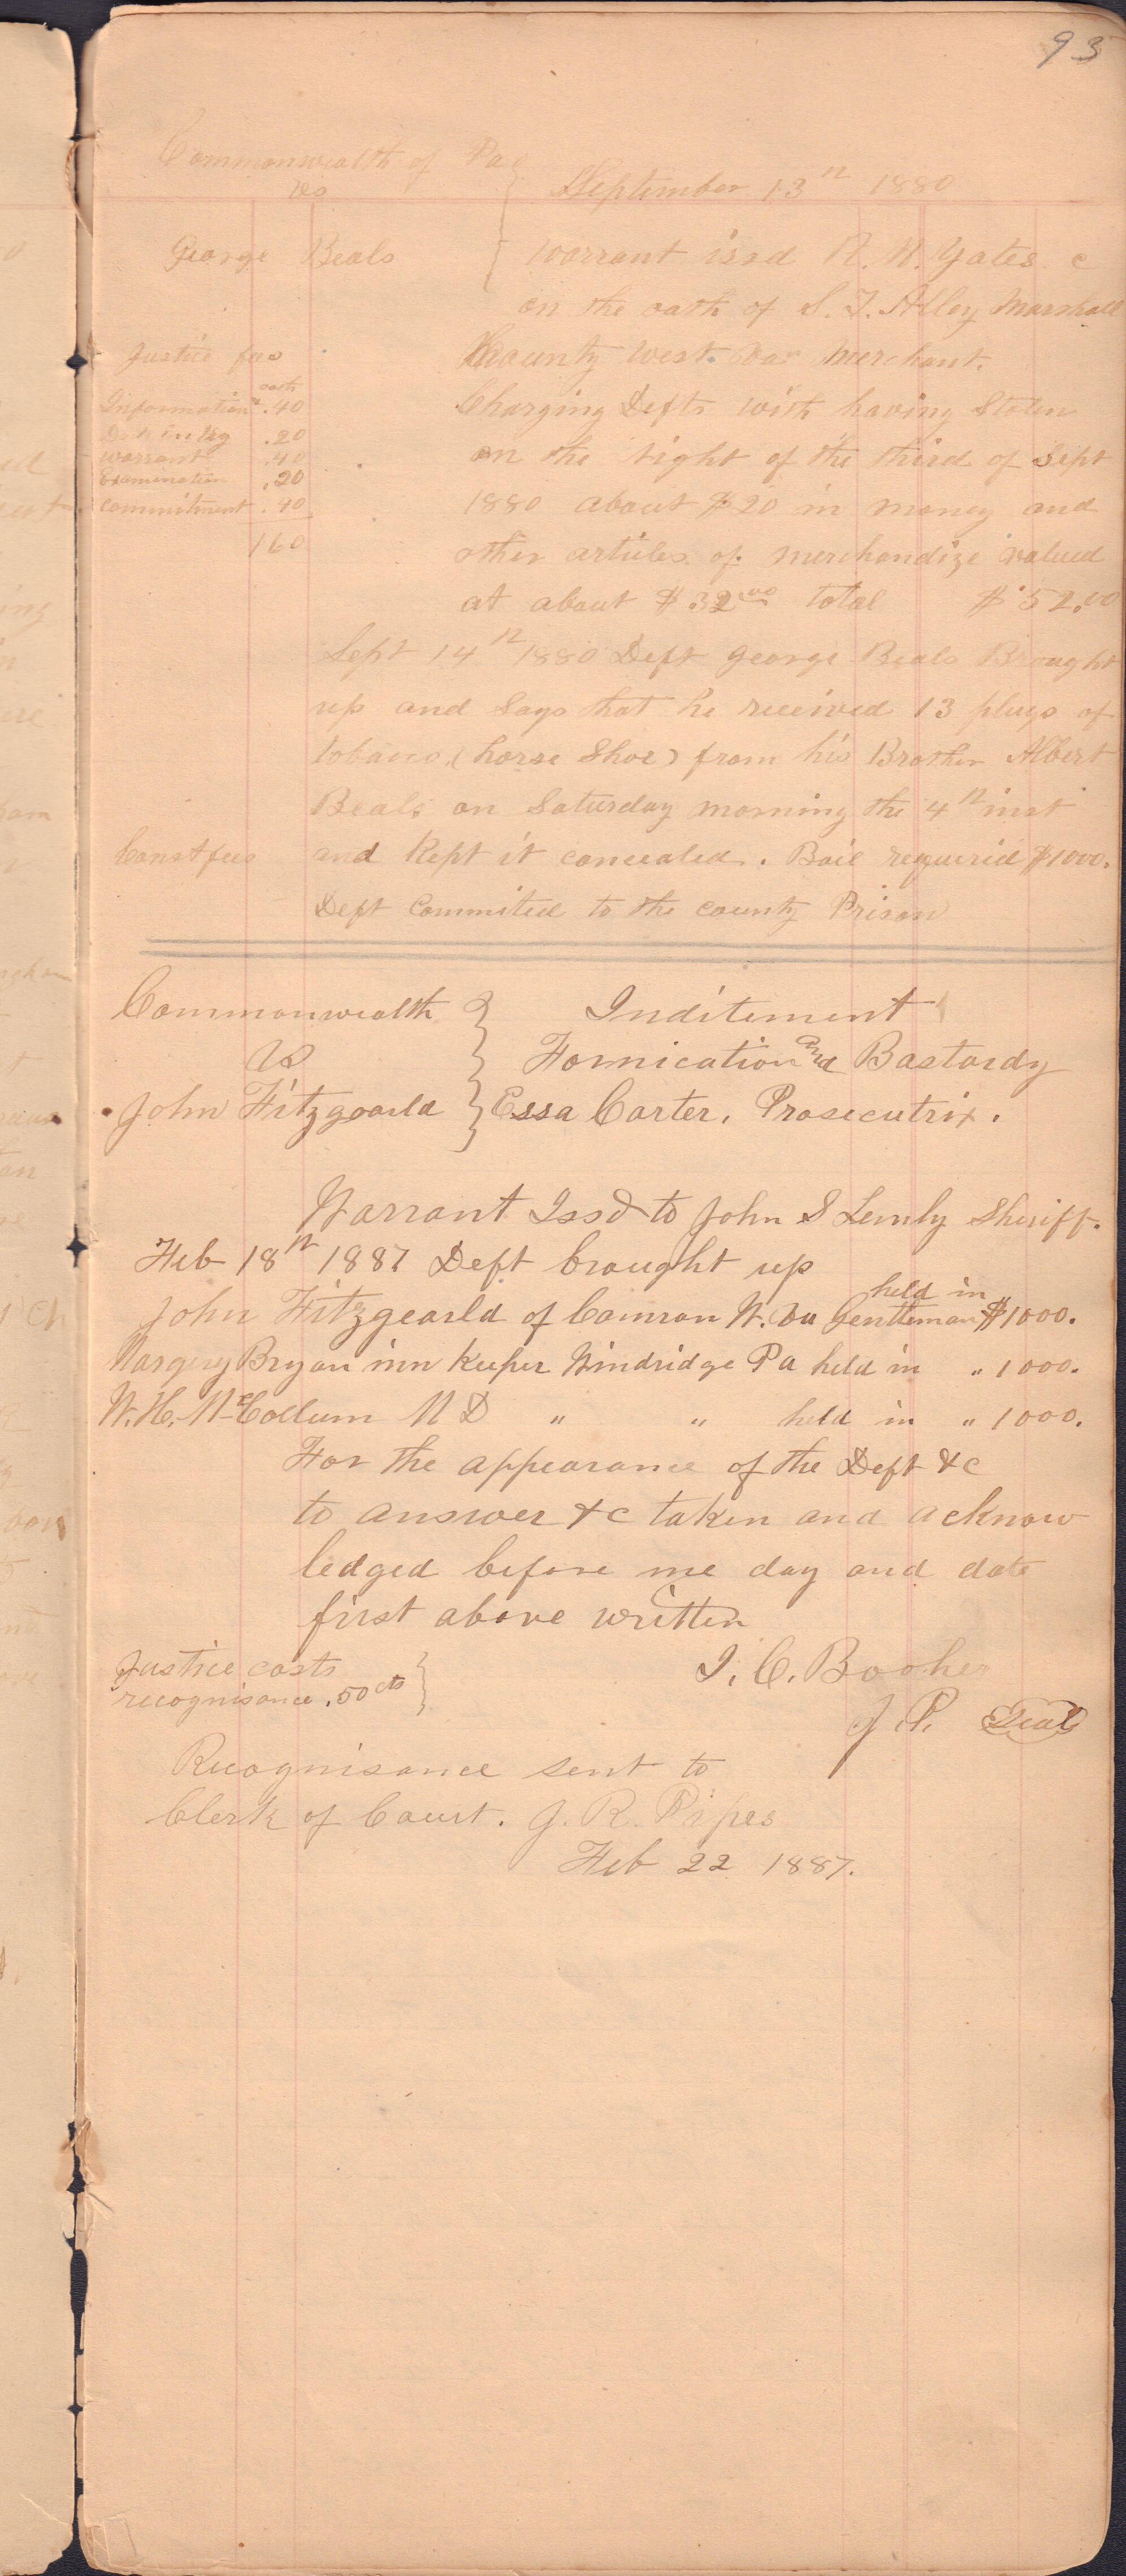 93
Commonwealth of Pa
vs
September 13th 1880
George Beals
Warrant issd R. N. Yates c
on the oath of S. T. Alley Marshall
County West. Va. Merchant.
Charging Defts with having Stolen
on the night of the third of Sept
1880 about $20 in money and
other articles of merchandize valued
at about $32.00 total $52.00
Justice fees
oath
Information .40
.20
warrant .40
Examination .20
commitment .40
160
Sept 14th 1880 Deft George Beals Brought
up and Says that he received 13 plugs of
tobacco (horse Shoe) from his Brother Albert
Beals on Saturday morning the 4th inst
Const fees and Kept it concealed. Bail requierid $1000.
Deft Commited to the county Prison
Commonwealth
vs
John Fitzgearld
Inditement
Fornication and Bastardy
Essa Carter. Prosecutrix.
Warrant Issd to John S Lemly Sheriff.
Feb 18th 1887 Deft brought up
held in
John Fitzgearld of Camron W. Va Gentleman $1000.
Margery Bryan inn Keeper Windridge Pa held in " 1000.
W. H. McCollum M D " " held in " 1000.
For the appearance of the Deft &c
to answer &c taken and acknow
ledged before me day and date
first above written
Justice costs
recognisance .50 cts
J. C. Booher
J. P. Seal
Recognisance sent to
Clerk of Court. J. R. Pipes
Feb 22 1887.